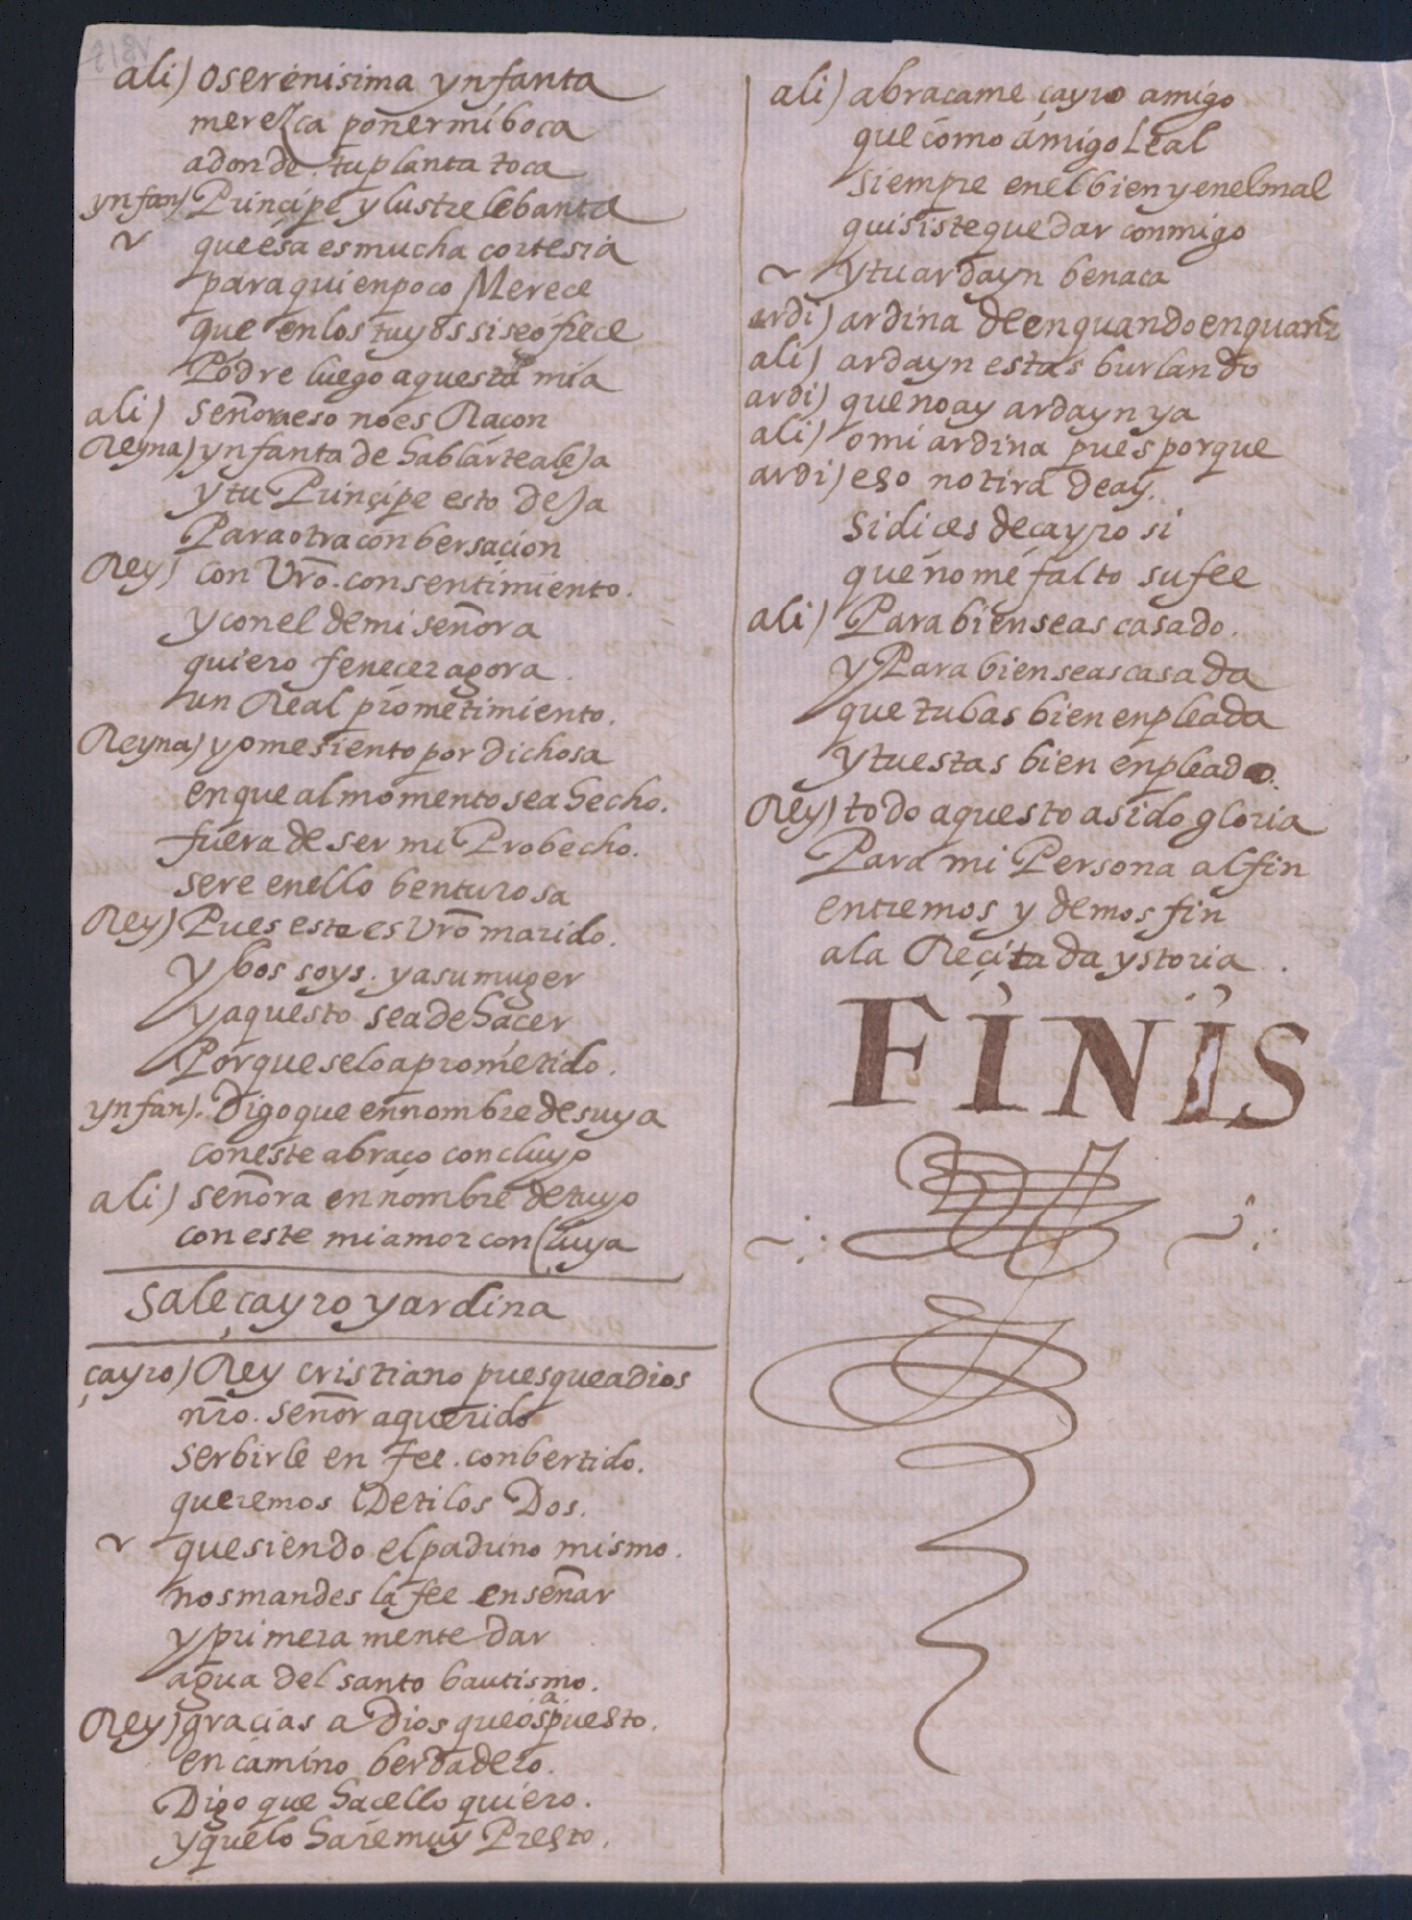 ali) o serenisima ynfanta
merezca poner mi boca
adonde tu planta toca
ynfan) Principe ylustre lebanta
que esa es mucha cortesia
para quien poco Merece
que en los tuyos si se ofrece
Podre luego aquesta mia
ali) señora eso no es Raçon
Reyna) ynfanta de hablarte aleja
y tu Prinçipe esto deja
Para otra conbersaçion
Rey) con Vro. consentimiento.
y con el de mi señora
quiero fenecer agora.
un Real prometimiento.
Reyna) yo me siento por dichosa
en que al momento sea hecho.
fuera de ser mi Probecho.
sere en ello benturosa
Rey) Pues este es Vro marido.
y bos soys. ya su muger
y aquesto se a de hacer
Porque se lo a prometido.
ynfan). Digo que en nombre de suya
con este abraço concluyo
ali) señora en nombre de tuyo
con este mi amor concluya
sale çayro y ardina
çayro) Rey cristiano pues que a dios
nro. señor a querido
serbirle en fee. conbertido.
queremos De ti los Dos.
que siendo el padrino mismo.
nos mandes la fee enseñar
y primera mente dar
agua del santo bautismo.
Rey) gracias a Dios que os a puesto.
en camino berdadero.
Digo que hacello quiero.
y que lo hare muy Presto.
ali) abraçame çayro amigo
que como amigo Leal
siempre en el bien y en el mal
quisiste quedar conmigo
y tu ardayn ben aca
ardi) ardina de en quando en quando
ali) ardayn estas burlando
ardi) que no ay ardayn ya
ali) o mi ardina pues porque
ardi) eso no tira de ay.
si dices de cayro si
que no me falto su fee
ali) Para bien seas casado.
y Para bien seas casada
que tu bas bien enpleada
y tu estas bien enpleado.
Rey) todo aquesto a sido gloria
Para mi Persona al fin
entremos y demos fin
a la Reçitada ystoria.
FINIS